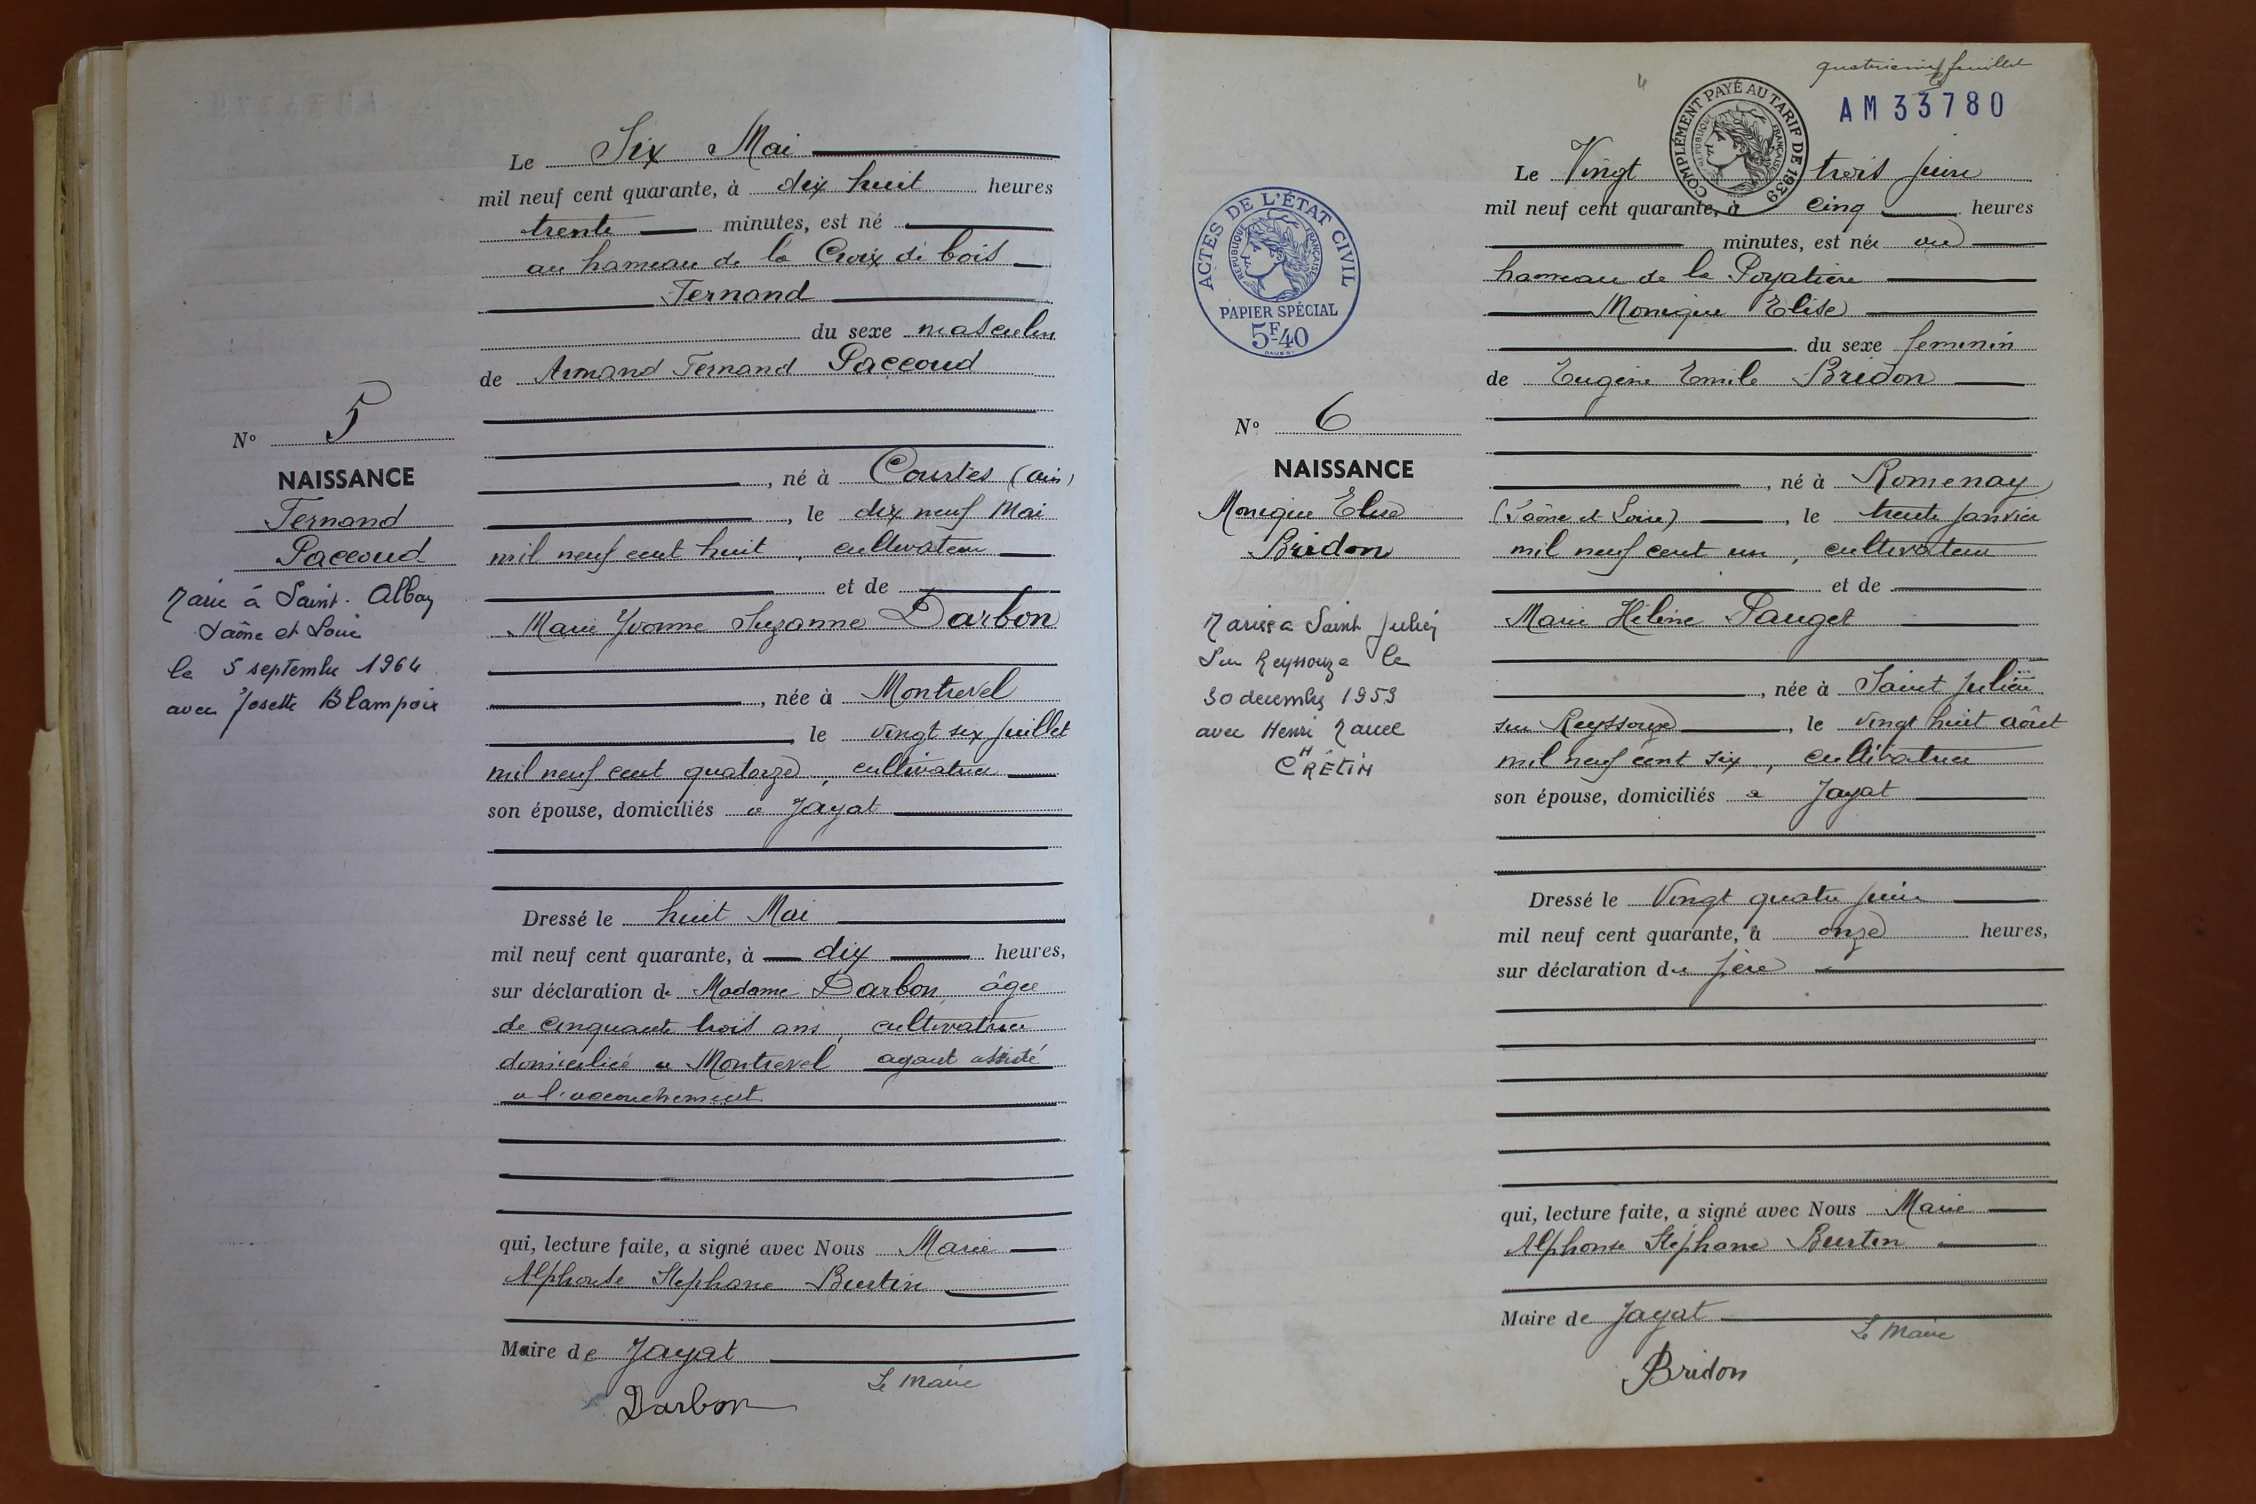 Le Six Mai
mil neuf cent quarante, à dix huit heures
trente minutes, est né
au hameau de la Croix de bois
Fernand
du sexe masculin
de Armand Fernand Paccoud
, né à Courtes (ain)
, le dix neuf Mai
mil neuf cent huit, cultivateur
et de
Marie Yvonne Suzanne Darbon
, née à Montrevel
le vingt six juillet
mil neuf cent quatorze, cultivatrice
son épouse, domiciliés à Jayat
Dressé le huit Mai
mil neuf cent quarante, à dix heures,
sur déclaration de Madame Darbon, âgée
de cinquante trois ans, cultivatrice
domiciliée a Montrevel ayant assisté
a l'accouchement
qui, lecture faite, a signé avec Nous Marie
Alphonse Stephane Burtin
Maire de Jayat
Le Maire
Darbon
N° 5
NAISSANCE
Fernand
Paccoud
Marié à Saint Albain
Saône et Loire
le 5 septembre 1964
avec Josette Blampoix
quatrième feuillet
4
AM 33780
COMPLÉMENT PAYÉ AU TARIF DE 1939
RÉPUBLIQUE FRANÇAISE
Le Vingt trois juin
mil neuf cent quarante, à cinq heures
minutes, est née au
hameau de la Poyatière
Monique Elise
du sexe feminin
de Eugène Emile Bridon
, né à Romenay
(Saône et Loire), le trente janvier
mil neuf cent un, cultivateur
et de
Marie Hélène Pauget
, née à Saint Julien
sur Reyssouze, le vingt huit août
mil neuf cent six, cultivatrice
son épouse, domiciliés a Jayat
Dressé le Vingt quatre juin
mil neuf cent quarante, à onze heures,
sur déclaration du père
qui, lecture faite, a signé avec Nous Marie
Alphonse Stéphane Burtin
Maire de Jayat
Le Maire
Bridon
ACTES DE L'ÉTAT CIVIL
RÉPUBLIQUE FRANÇAISE
PAPIER SPÉCIAL
5F40
N° 6
NAISSANCE
Monique Elise
Bridon
Mariée a Saint Julien
sur Reyssouze le
30 decembre 1959
avec Henri Marcel
CHRÉTIN